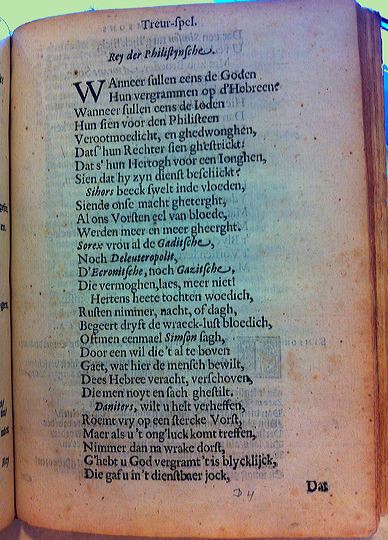 Treur-spel.
Rey der Philistynsche.
WAnneer sullen eens de Goden
Hun vergrammen op d'Hebreen?
Wanneer sullen eens de Ioden
Hun sien voor den Philisteen
Verootmoedicht, en ghedwonghen,
Dats' hun Rechter sien ghestrickt:
Dat s' hun Hertogh voor een Ionghen,
Sien dat hy zyn dienst beschickt?
Sihors beeck swelt inde vloeden,
Siende onse macht ghetterght,
Al ons Vorsten eel van bloede,
Werden meer en meer gheerght.
Sorex vrou al de Gaditsche,
Noch Deleuteropolit,
D'Ecronitsche, noch Gazitsche,
Die vermoghen, laes, meer niet!
Hertens heete tochten woedich,
Rusten nimmer, nacht, of dagh,
Begeert dryft de wraeck-lust bloedich,
Oftmen eenmael Simson sagh,
Door een wil die 't al te boven
Gaet, wat hier de mensch bewilt,
Dees Hebree veracht, verschoven,
Die men noyt en sach ghestilt.
Daniters, wilt u helt verheffen,
Roemt vry op een stercke Vorst,
Maer als u 't ong'luck komt treffen,
Nimmer dan na wrake dorst,
G'hebt u God vergramt 't is blycklijck,
Die gaf u in 't dienstbaer jock,
D 4
Dat